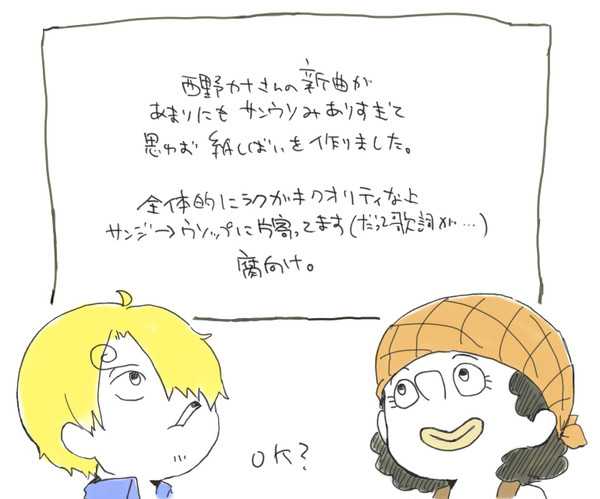 西野カナさんの新曲が
あまりにも サンウソみありすぎて
思わず 紙しばいを作りました。
全体的にラクガキクオリティな上
サンジ→ウソップに片寄ってます(だって歌詞が…)
腐向け。
OK?